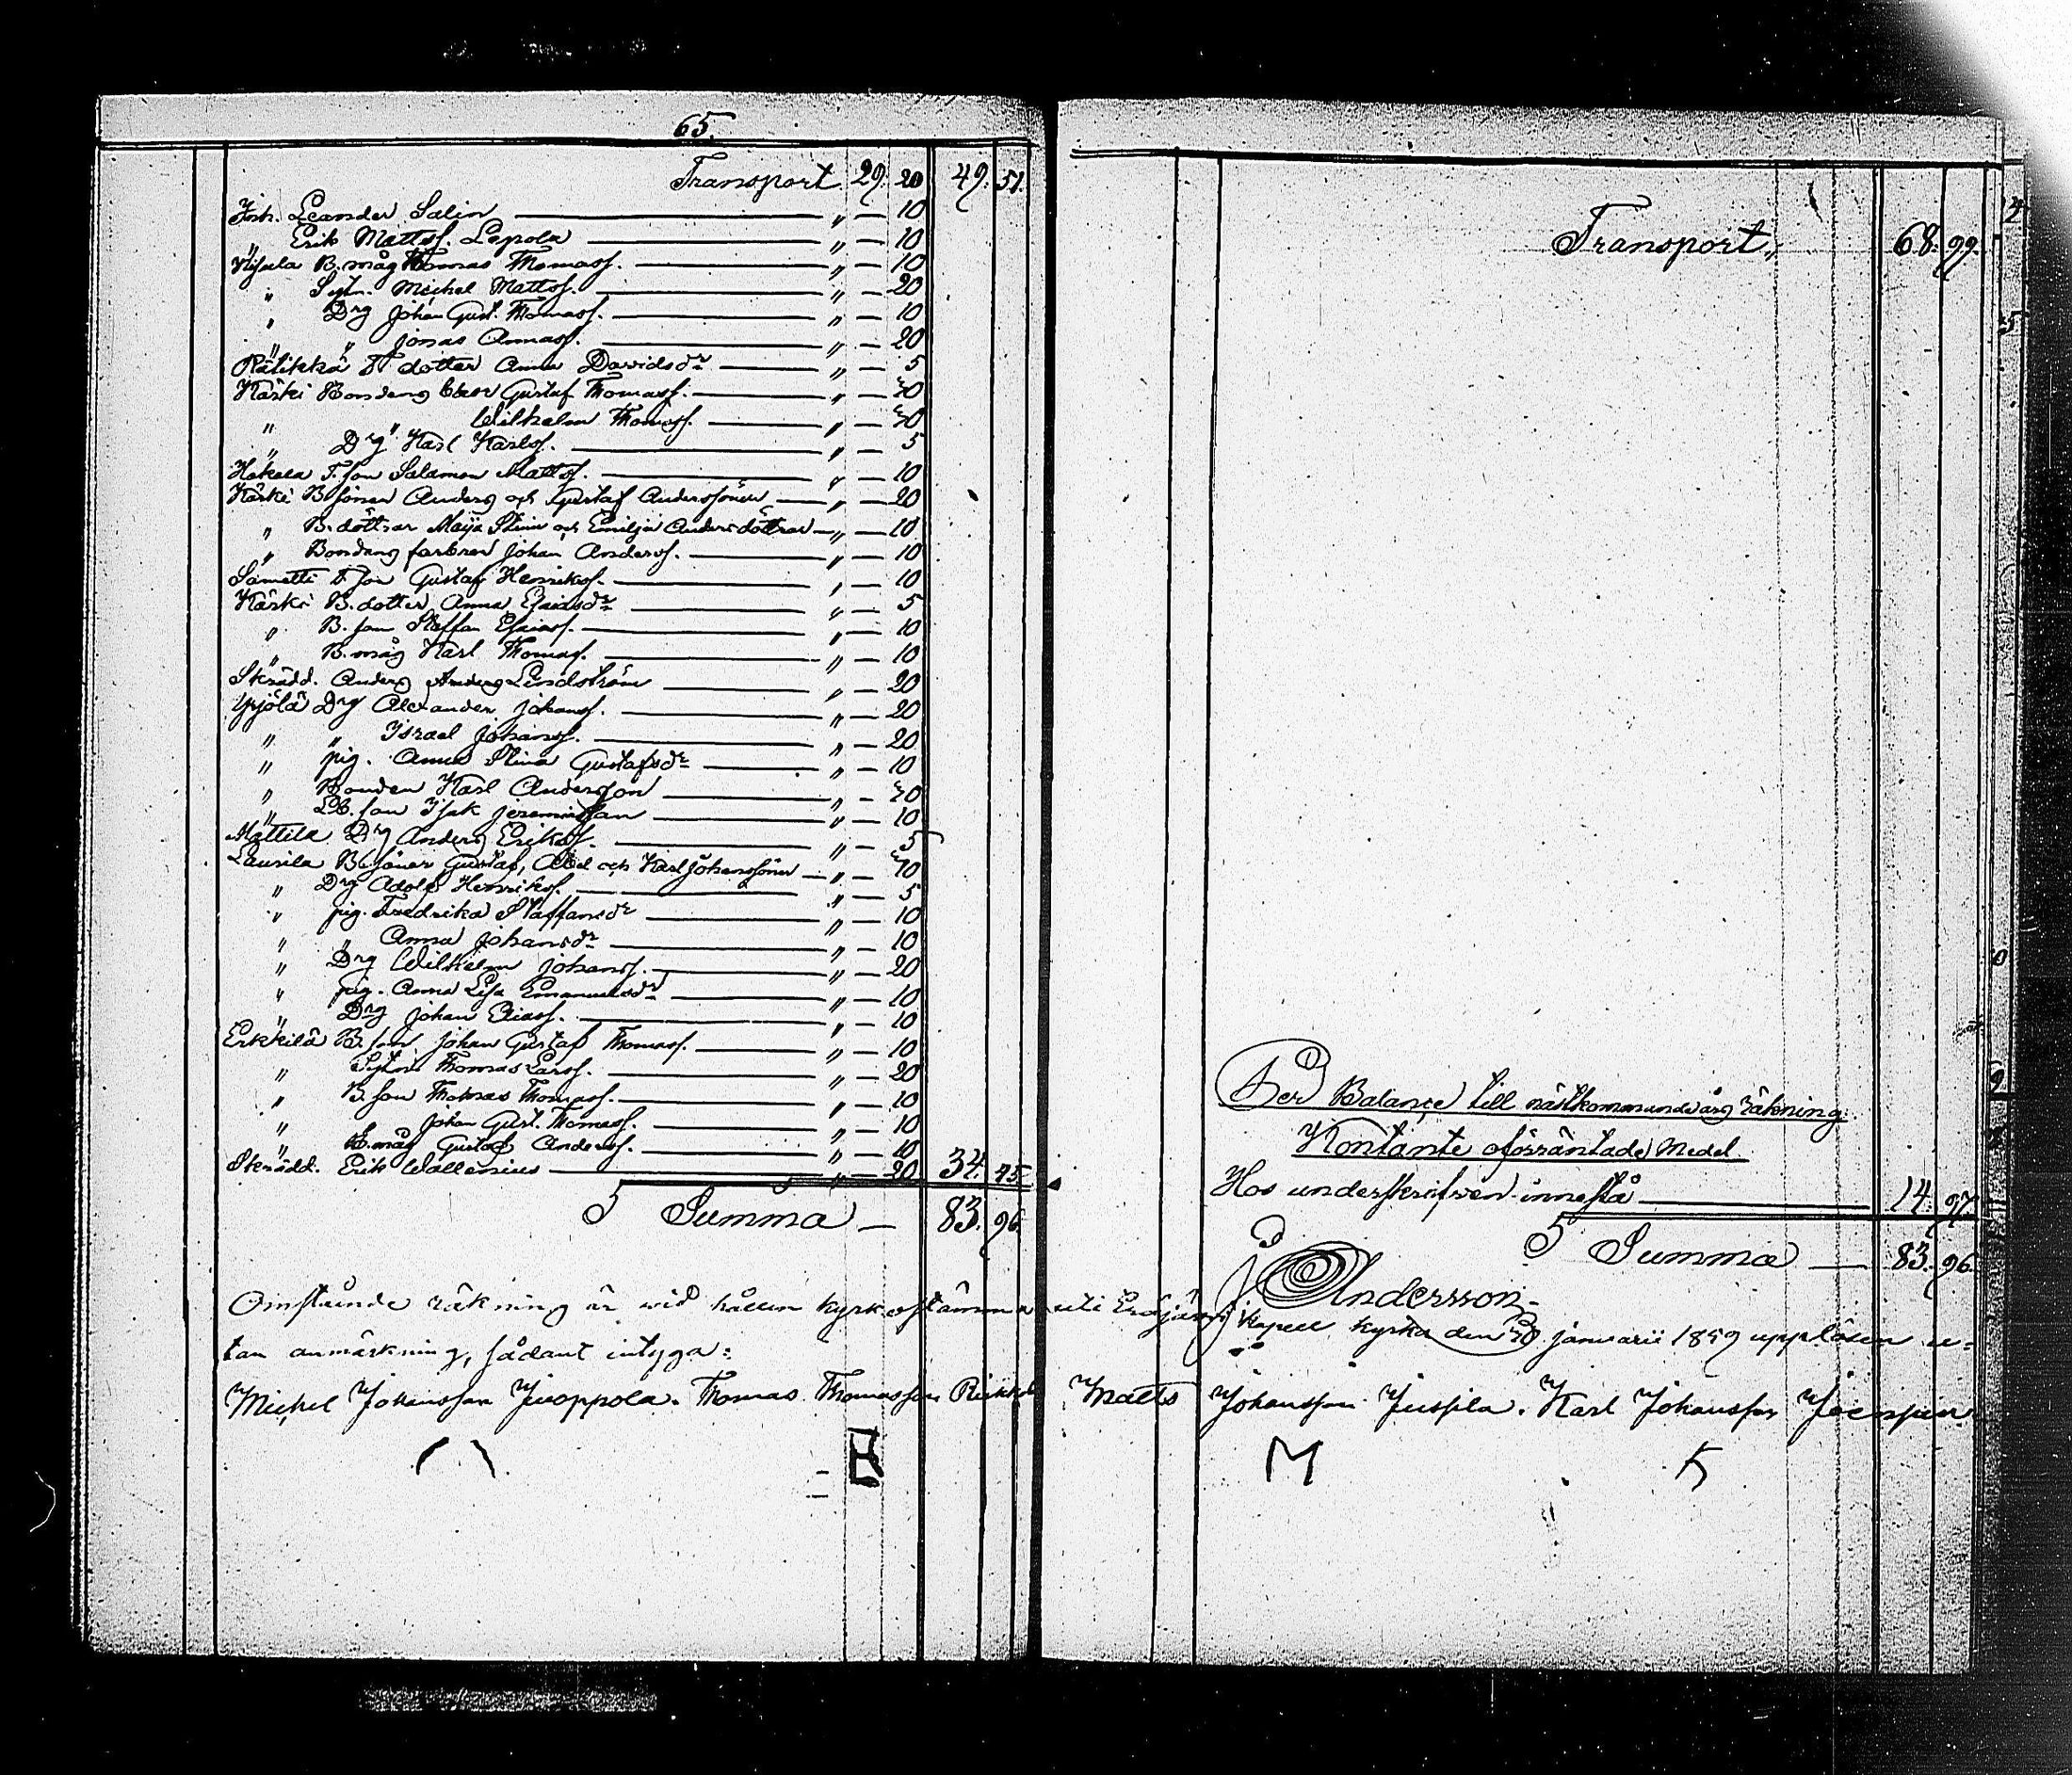 65.
Transport 29. 20 49. 51.
Joh. Leander Salin — " — 10
" Erik Mattss. Lepola — " — 10
B. måg Thomas Thomass. — " — 10
" Sytn. Michel Mattss. — " — 20
" Drg Johan Gust. Thomass. — " — 10
" " Jonas Annass. — " — 20
Rätikkä T dotter Anna Davidsdr — " — 5
Käski Bondens broder Gustaf Thomass. — "
" " Wilhelm Thomass. — "
" Drg Karl Karlss. — " — 5
Hakala T. son Salamon Mattss. — " — 10
Käski B söner Anders och Gustaf Anderssöner — " — 20
" B. döttrar Maija Stina och Emilja Andersdöttrar — " — 10
" Bondens farbror Johan Anderss. — " — 10
Sametti T. son Gustaf Henrikss. — " — 10
Käski B. dotter Anna Esaiasdr — " — 5
" B. son Staffan Esaiass. — " — 10
" B. måg Karl Thomass. — " — 10
Skrädd. Anders Anderss Lindström — " — 20
Ypjölä Drg Alexander Johanss. — " — 20
" " Israel Johanss. — " — 20
" pig. Anna Stina Gustafsdr — " — 10
" Bonden Karl Andersson — "
" son Isak Jeremiasson — " — 10
Mattila Drg Anders Erikss. — " — 5
Laurila B söner Gustaf, Abel och Karl Johanssöner — "
" Drg Adolf Henrikss. — " — 5
" pig. Fredrika Staffansdr — " — 10
" " Anna Johansdr — " — 10
" Drg Wilhelm Johanss. — " — 20
" pig. Anna Lisa Emanuelsdr — " — 10
" Drg Johan Eliass. — " — 10
Erkkilä B. son Johan Gustaf Thomass. — " — 10
" Sytn. Thomas Larss. — " — 20
" B. son Thomas Thomass. — " — 10
" " Johan Gust. Thomass. — " — 10
" B. måg Gustaf Anderss. — " — 10
Skrädd. Erik Wallenius — " — 20 34. 45.
S Summa — 83. 96.
Transport, 68. 99.
Per Balance till nästkommande års räkning.
Kontante oförräntade Medel.
Hos underskrifven innestå — 14. 97.
S Summa — 83. 96.
J Andersson.
Omstående räkning är wid hållen kyrkostämma uti kapell kyrka den 30 januarii 1859 uppläsen u=
tan anmärkning, sådant intyga:
Michel Johansson Juoppola. Thomas Thomasson Matts Johansson Juspila. Karl Johansson
M K